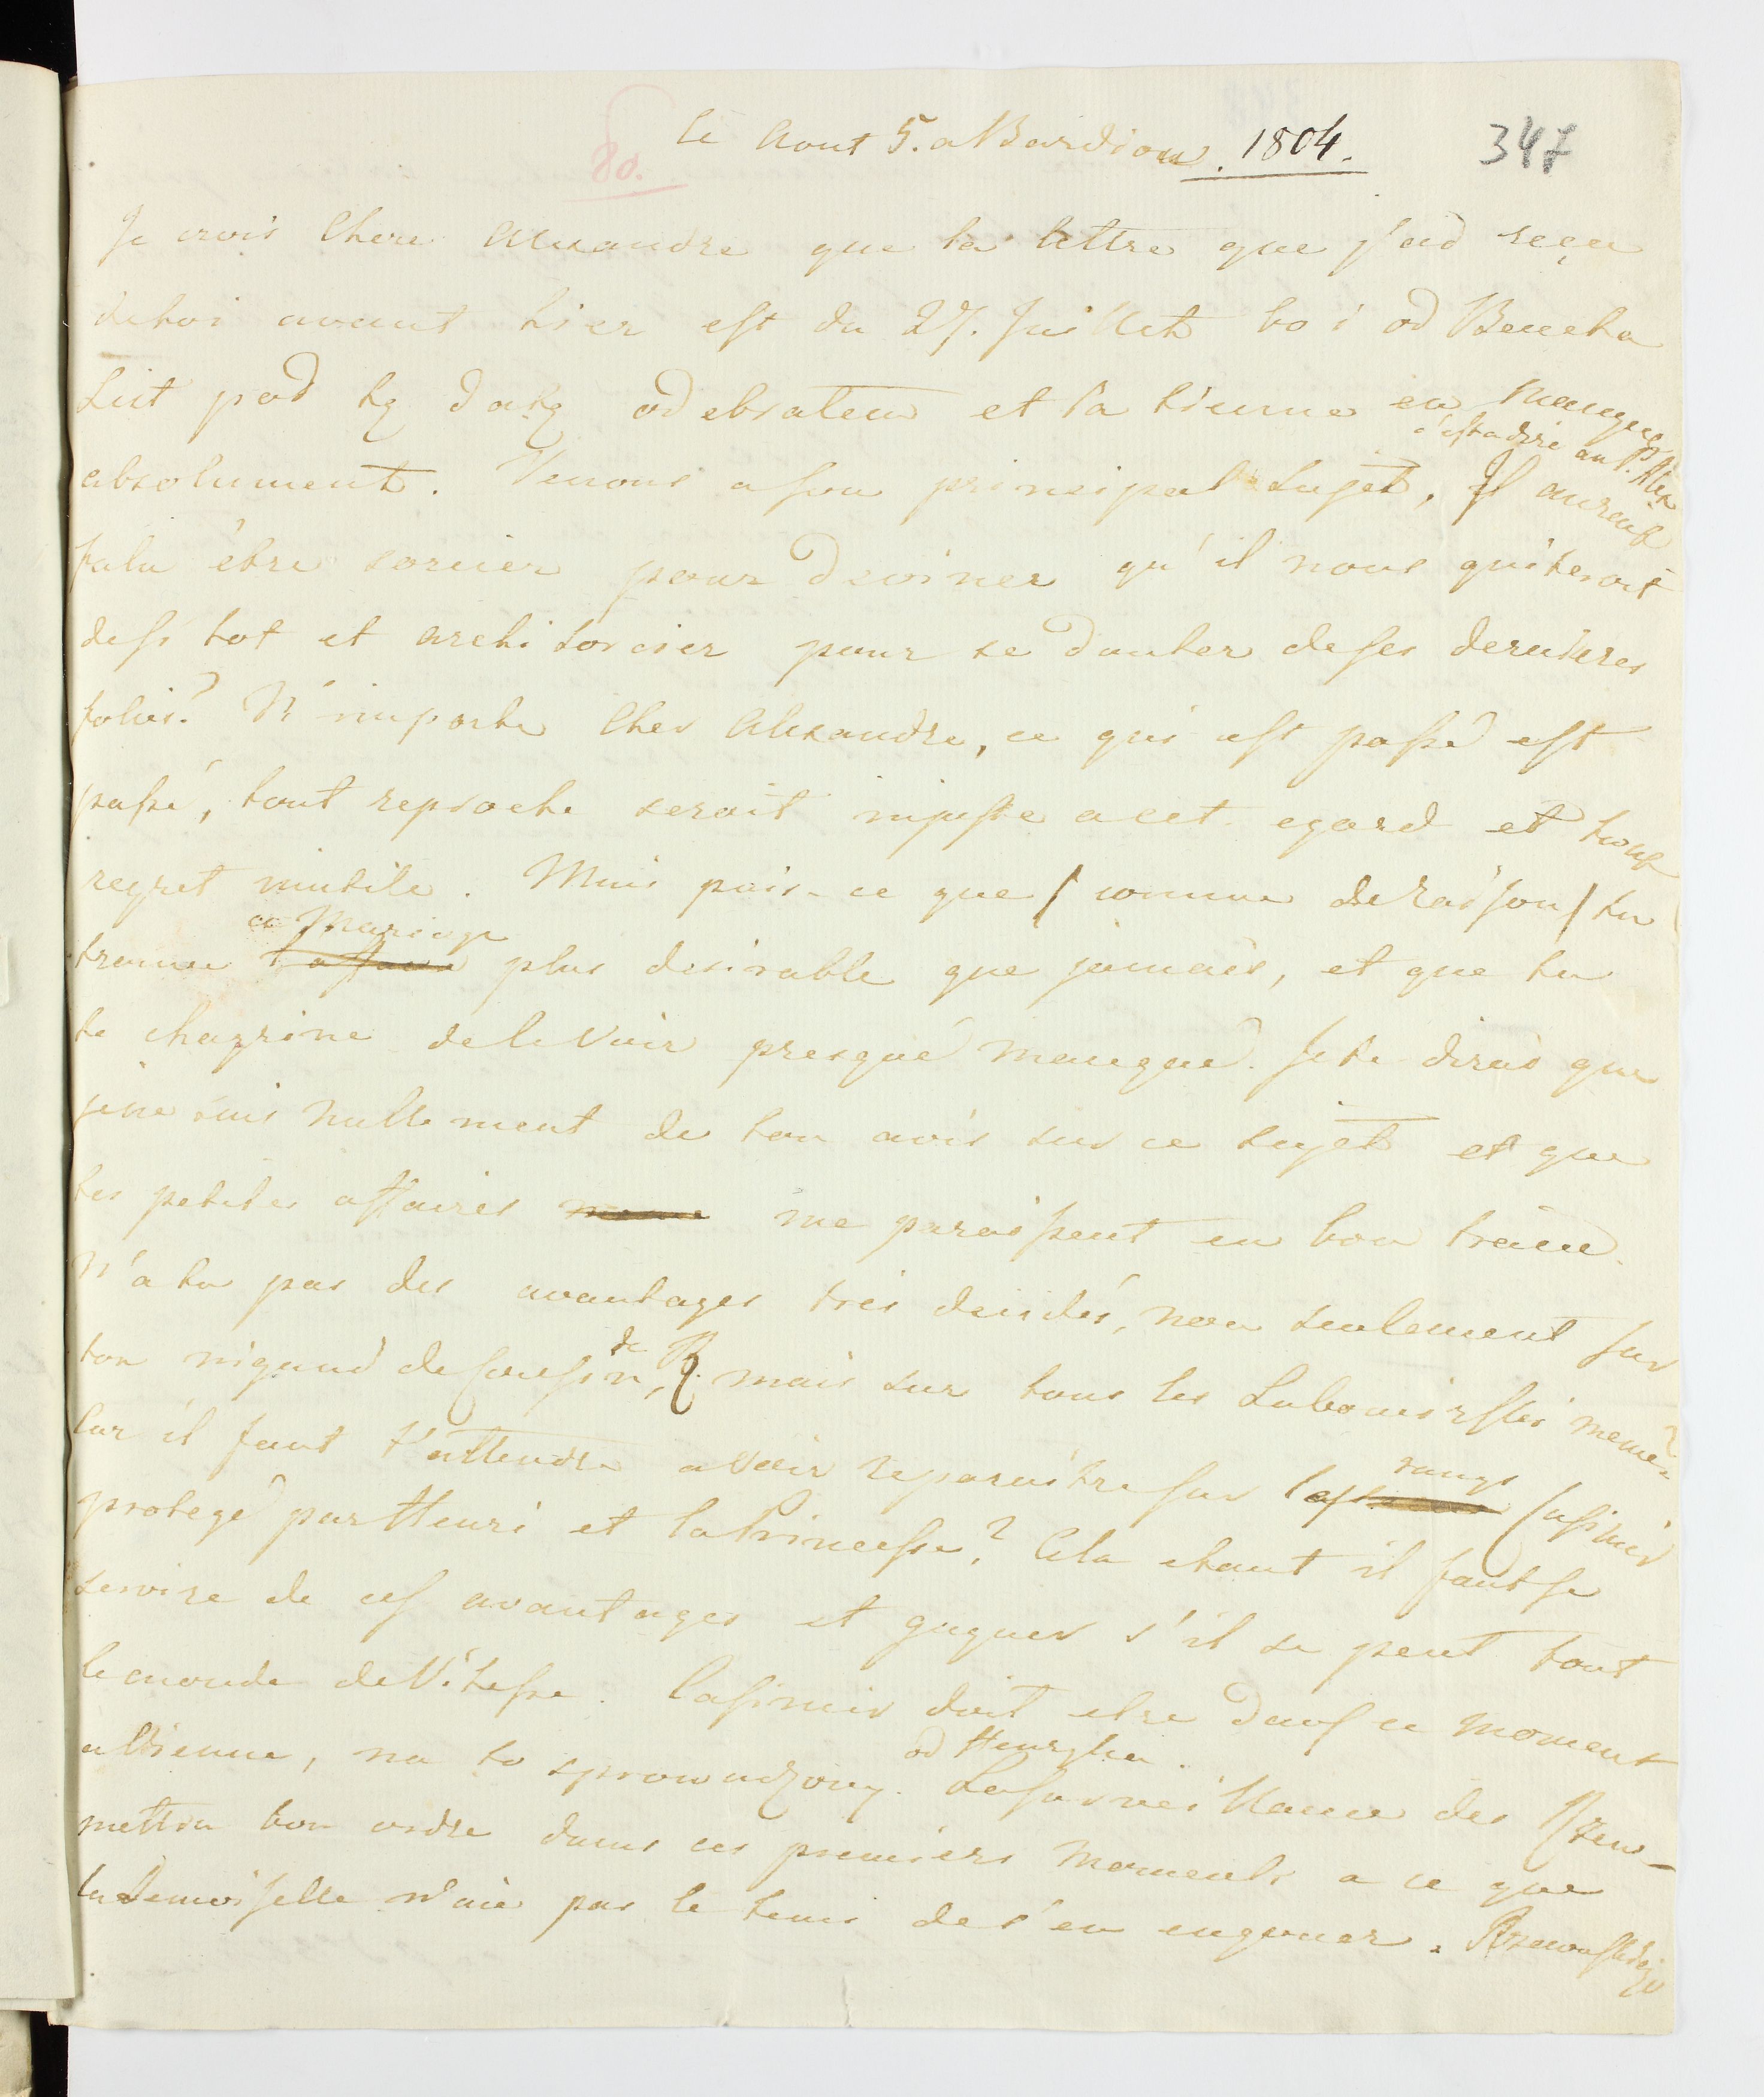 le Aout 5. a Bardiow. 1804.
347
80.
Je crois Chere Alexandre que ta lettre que j'ai reçu
detoi avant hier est du 27. Juillet bo i od Beneta
List pod tą datą odebrałem et la tienne en manque
absolument. Venons a son principal sujet, c'est a dire au P. Alex Il auroit
falu être sorcier pour deviner qu'il nous quiteroit
dessi tot et archi sorcier pour se douter desses dernieres
folies? N'importe Cher Alexandre, ce qui est passé est
passé, tout reproche seroit injuste acet egard et tout
regret inutile. Mais puis-ce que / comme deraison / tu
trouve ce Mariage plus desirable que jamais, et que tu
te chagrine delevoir presqué manqué. Jete dirai que
jene suis nullement de ton avis sur ce sujet et que
tes petites affaires me paraissent en bon traine.
N'a tu pas des avantages très decidés, non seulement sur
ton nigaud decousin, de R. mais sur tous les Lubomirski meme?
Car il faut t'attendre avoir reparaitre sur les rangs Casimir
protegé par Henri et laPrincesse? Cela etant il fautse
servire de ces avantages et gagner s'il se peut tout
lemonde deVitesse. Casimir doit etre dans ce moment
aVienne, na to sprowadzony od Henryka. Lasurveillance des Rzew-
mettra bon ordre dans ces premiers moments a ce que
la Demoiselle n'aie pas le tems des'en engouer. Rzewuskiego